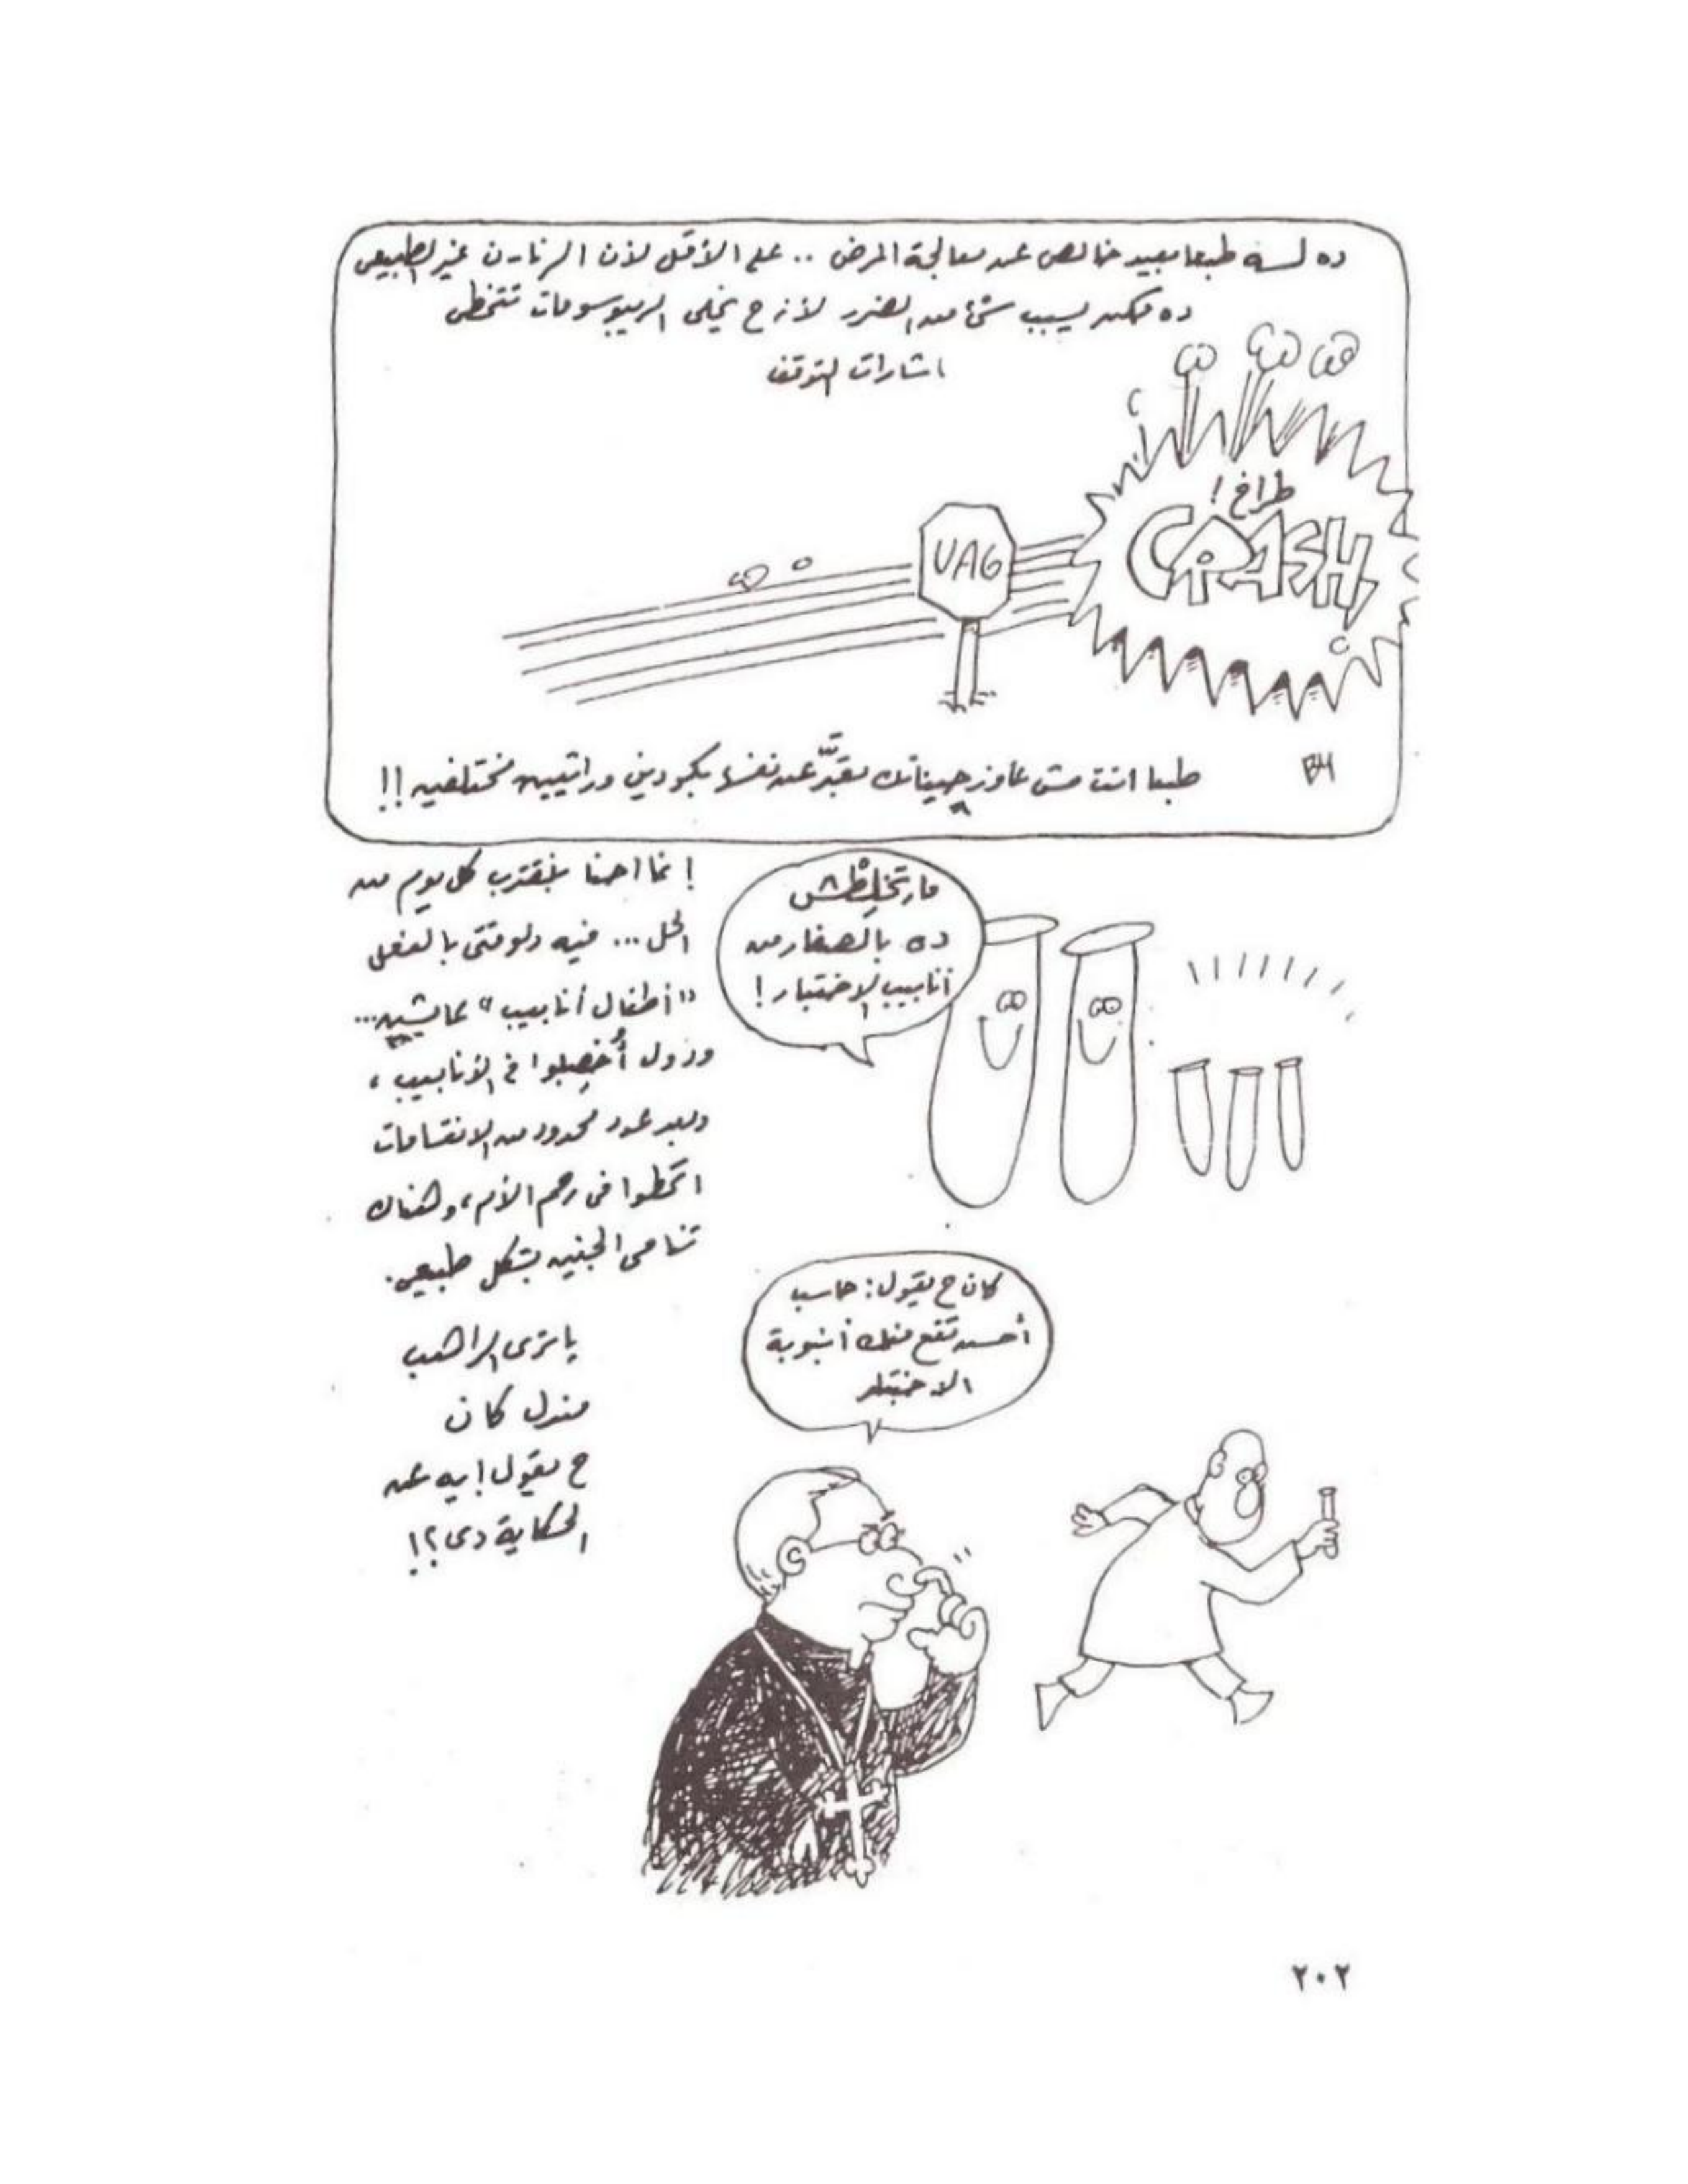 ده لسه طبعا بعيد خالص عن معالجة المرض .. على الأقل لأن الرنا-ن غير الطبيعى
ده ممكن يسبب شئ من الضرر لأنه ح يخلى الريبوسومات تتخطى
اشارات التوقف
طراخ!
CRASH
UAG
طبعا انت مش عاوز جيناتك تعبّر عن نفسها بكودين وراثيين مختلفين!!
إنما احنا بنقترب كل يوم من
الحل... فيه دلوقتى بالفعل
"أطفال أنابيب" عايشين...
ودول أُخصِبوا فى الأنابيب،
وبعد عدد محدود من الانقسامات
اتحطوا فى رحم الأم، وهناك
تنامى الجنين بشكل طبيعى.
ماتخلِطْش
ده بالصغار من
أنابيب الاختبار!
كان ح يقول: حاسب
أحسن تقع منك أنبوبة
الاختبار
ياترى الراهب
مندل كان
ح يقول إيه عن
الحكاية دى؟!
٢٠٢